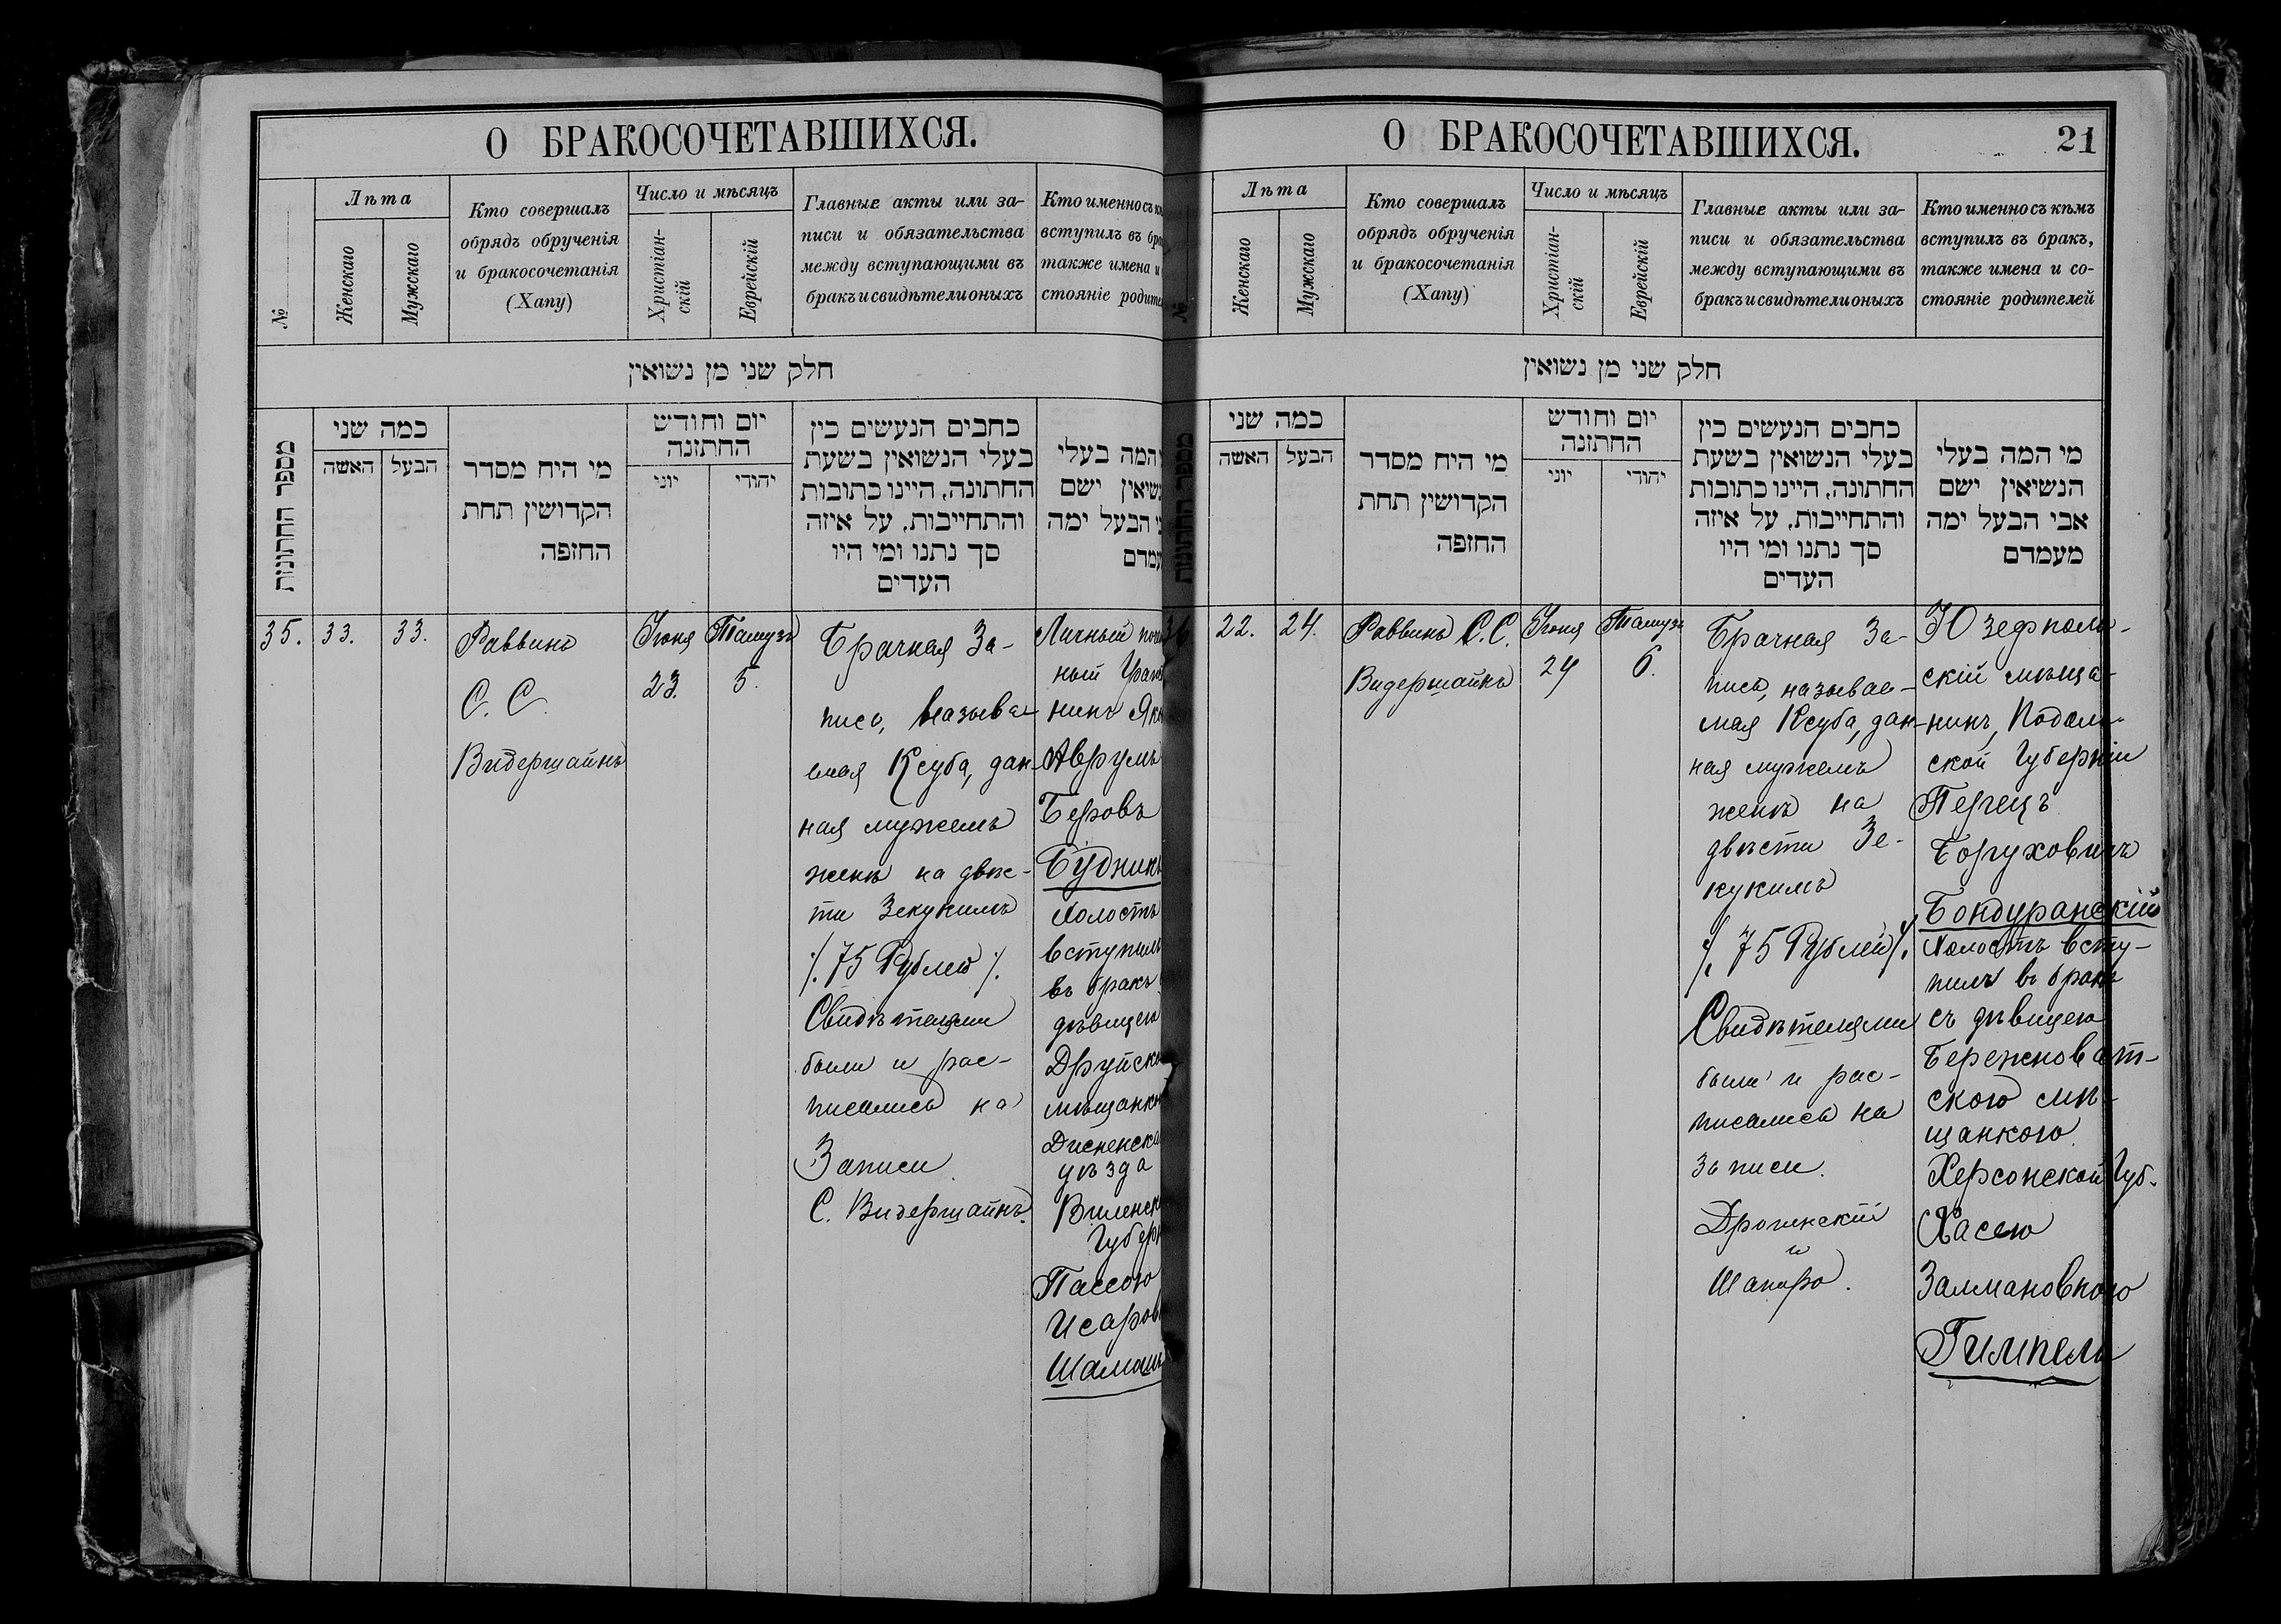 О БРАКОСОЧЕТАВШИХСЯ.
№
Лѣта
Женскаго
Мужскаго
Кто совершалъ
обрядъ обрученія
и бракосочетанія
(Хапу)
Число и мѣсяцъ
Христіан-
скій
Еврейскій
Главные акты или за-
писи и обязательства
между вступающими въ
бракъ и свидѣтели оныхъ
Кто именно съ
вступилъ въ
также имена и
стояніе
חלק שני מן נשואין
מספר החתונות
כמה שני
האשה
הבעל
מי היה מסדר
הקדושין תחת
החופה
יום וחודש
החתונה
יוני
יהודי
כתבים הנעשים בין
בעלי הנשואין בשעת
החתונה, היינו כתובות
והתחייבות, על איזה
סך נתנו ומי היו
העדים
המה בעלי
ישם
הבעל ימה
35.
33.
33.
Раввинъ
С. С.
Видершайнъ
Іюня
23.
Тамузъ
5.
Брачная За-
пись, называе-
мая Ксуба, дан-
ная мужемъ
женѣ на двѣс-
ти Зекукимъ
/. 75 Рублей /.
Свидѣтелями
были и рас-
писались на
Записи
С. Видершайнъ.
Личный
ный
нинъ
Аврумъ
Беровъ
Будникъ
Холостъ
вступилъ
въ бракъ
дѣвицею
уѣзда
Пассою
О БРАКОСОЧЕТАВШИХСЯ.
21
№
Лѣта
Женскаго
Мужскаго
Кто совершалъ
обрядъ обрученія
и бракосочетанія
(Хапу)
Число и мѣсяцъ
Христіан-
скій
Еврейскій
Главные акты или за-
писи и обязательства
между вступающими въ
бракъ и свидѣтели оныхъ
Кто именно съ кѣмъ
вступилъ въ бракъ,
также имена и со-
стояніе родителей
חלק שני מן נשואין
כמה שני
האשה
הבעל
מי היה מסדר
הקדושין תחת
החופה
יום וחודש
החתונה
יוני
יהודי
כתבים הנעשים בין
בעלי הנשואין בשעת
החתונה, היינו כתובות
והתחייבות, על איזה
סך נתנו ומי היו
העדים
מי המה בעלי
הנשיאין ישם
אבי הבעל ימה
מעמדם
22.
24.
Раввинъ С. С.
Видершайнъ
Іюня
24
Тамузъ
6.
Брачная За-
пись, называе-
мая Ксуба, дан-
ная мужемъ
женѣ на
двѣсти Зе-
кукимъ
/. 75 Рублей /.
Свидѣтелями
были и рас-
писались на
записи.
и
Шапиро.
Юзефполь-
скій мѣща-
нинъ, Подоль-
ской Губерніи
Перецъ
Боруховичъ
Бондуранскій
Холостъ всту-
пилъ въ бракъ
съ дѣвицею
Березноват-
скою мѣ-
щанкою
Херсонской Губ.
Хасею
Залмановною
Гимпель